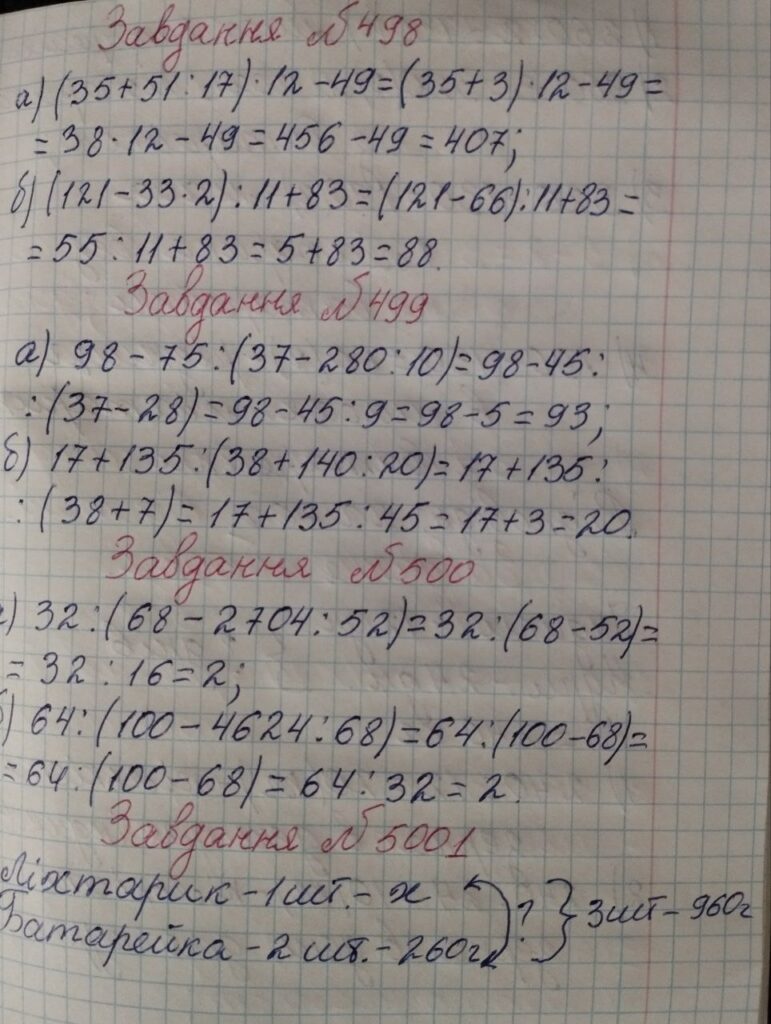 Завдання №498
а) (35+51:17)·12-49=(35+3)·12-49=
=38·12-49=456-49=407;
б) (121-33·2):11+83=(121-66):11+83=
=55:11+83=5+83=88.
Завдання №499
а) 98-75:(37-280:10)=98-45:
:(37-28)=98-45:9=98-5=93;
б) 17+135:(38+140:20)=17+135:
:(38+7)=17+135:45=17+3=20.
Завдання №500
а) 32:(68-2704:52)=32:(68-52)=
=32:16=2;
б) 64:(100-4624:68)=64:(100-68)=
=64:(100-68)=64:32=2.
Завдання №5001
Ліхтарик-1шт.-х ? } 3шт-960г
Батарейка-2шт.-260г